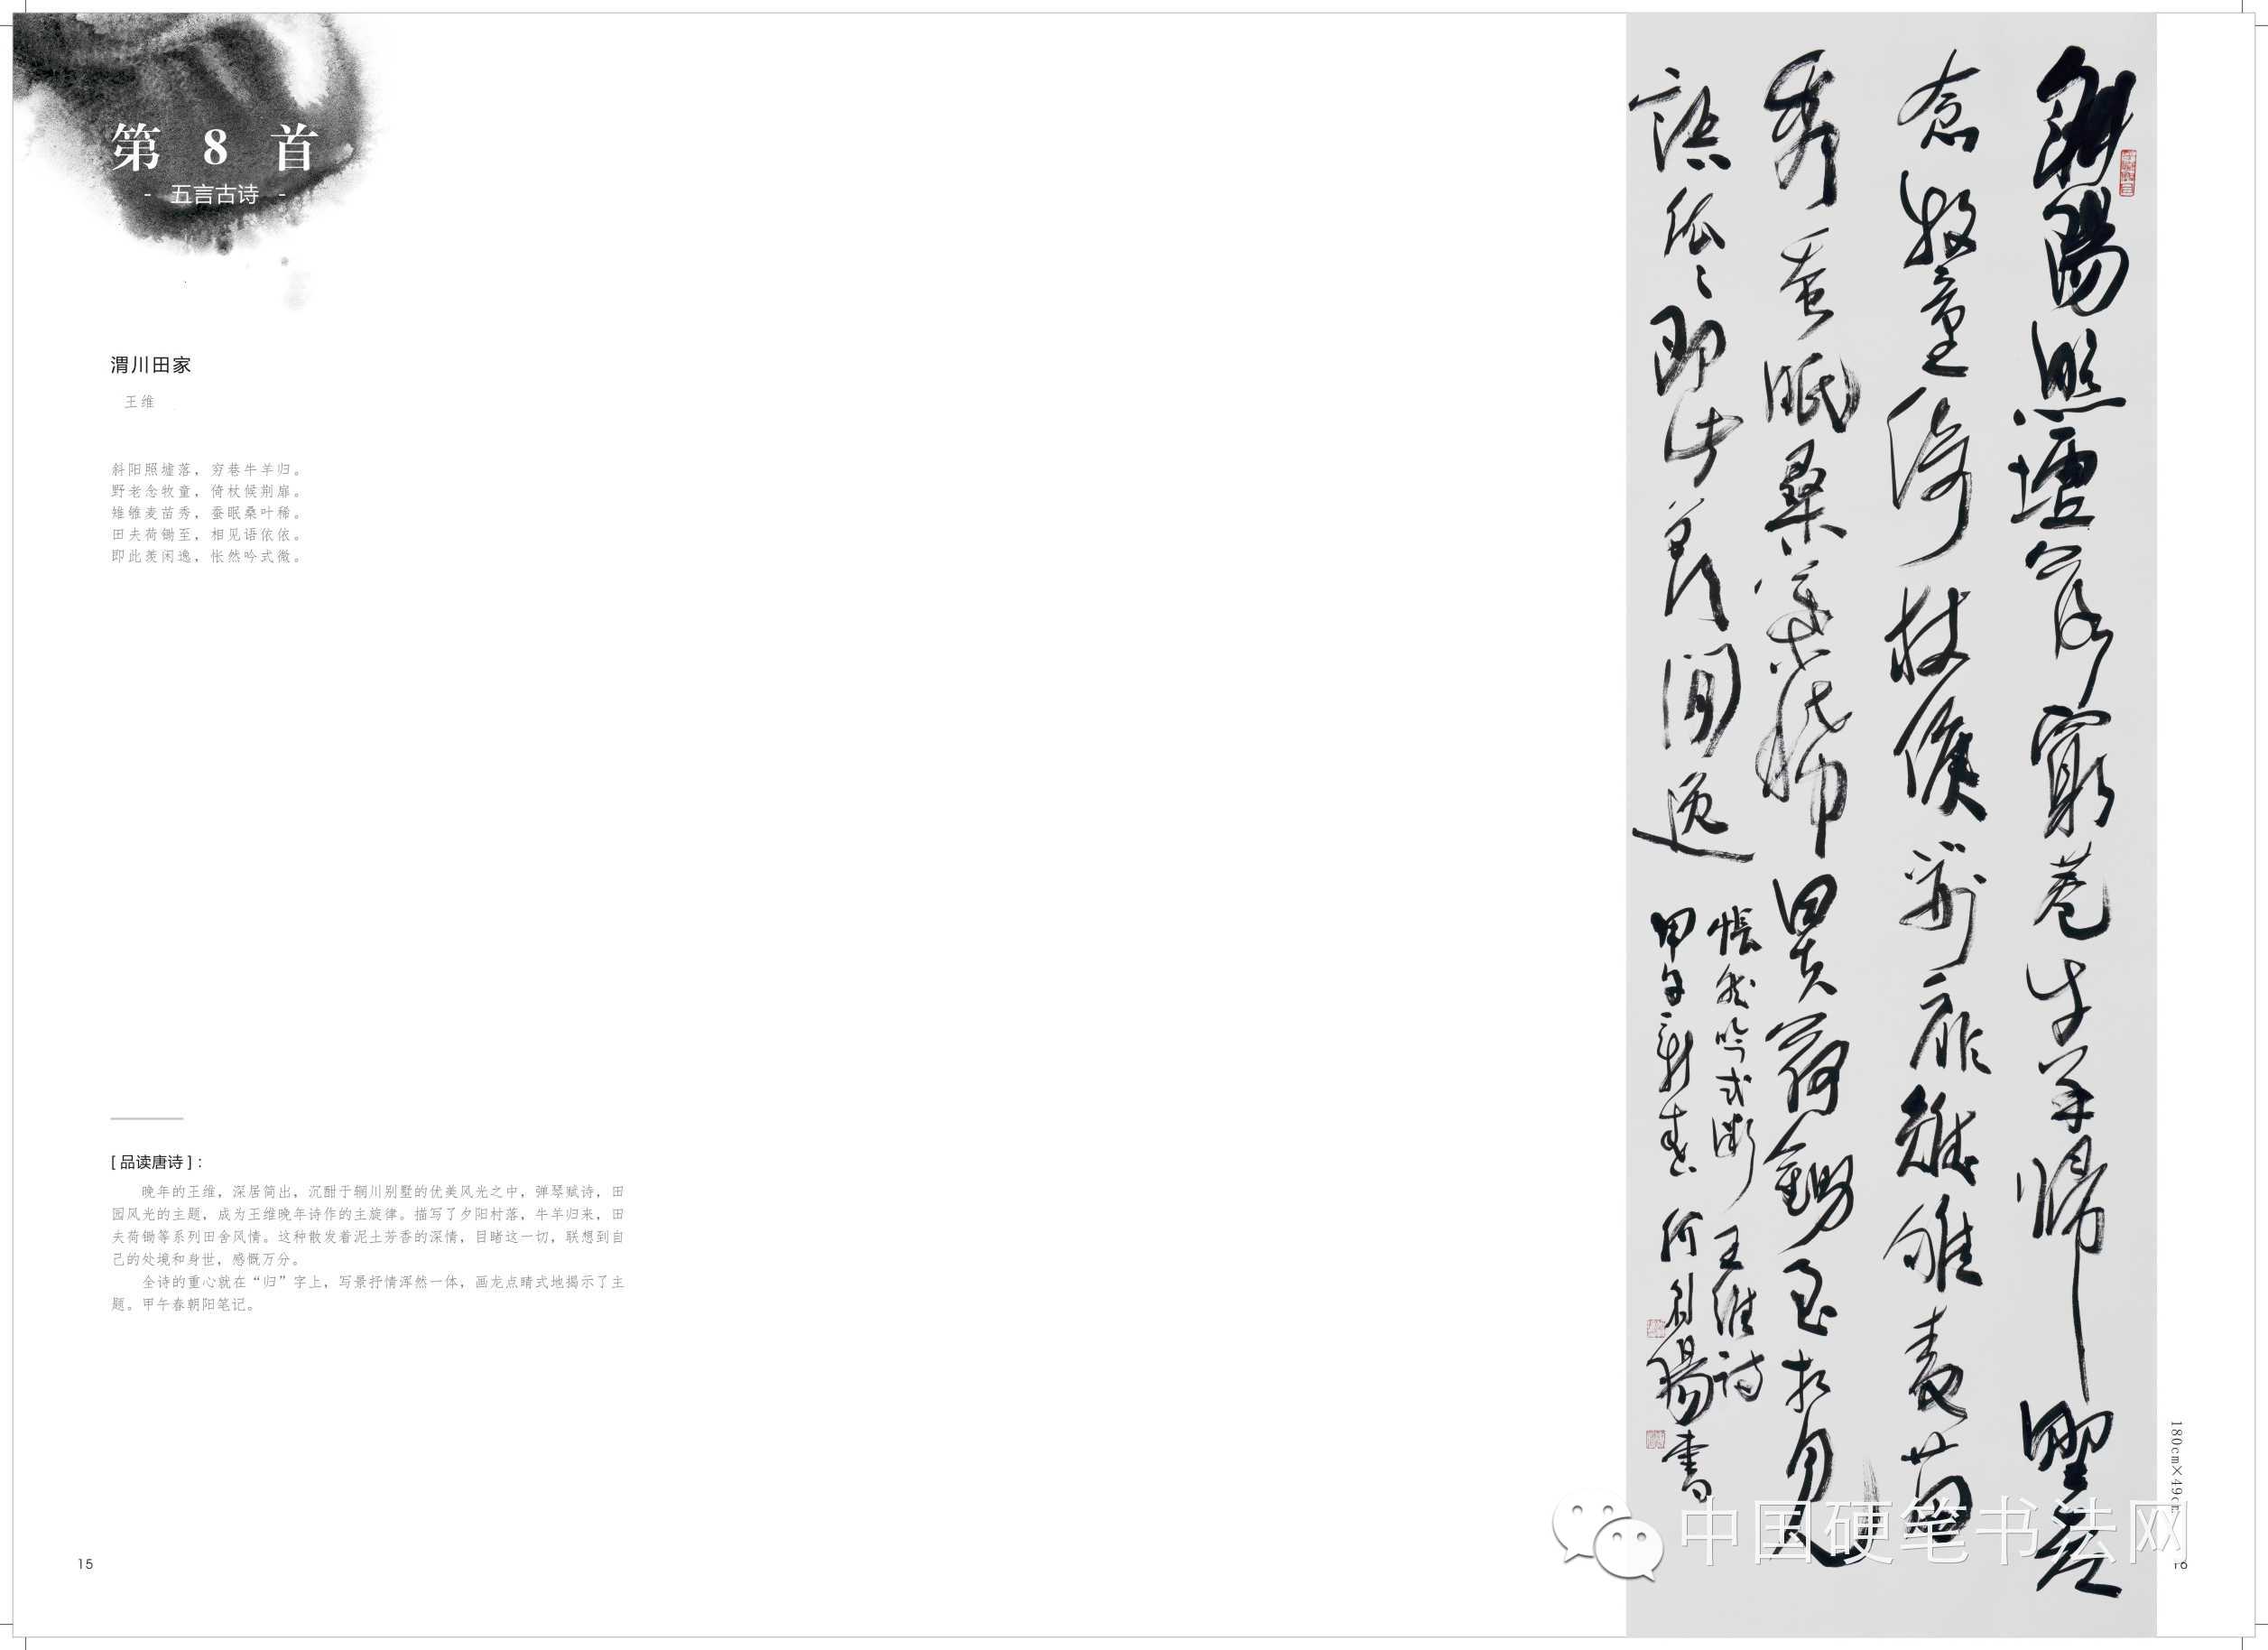 第 8 首
- 五言古诗 -
渭川田家
王维
斜阳照墟落，穷巷牛羊归。
野老念牧童，倚杖候荆扉。
雉雊麦苗秀，蚕眠桑叶稀。
田夫荷锄至，相见语依依。
即此羡闲逸，怅然吟式微。
[ 品读唐诗 ]：
晚年的王维，深居简出，沉酣于辋川别墅的优美风光之中，弹琴赋诗，田
园风光的主题，成为王维晚年诗作的主旋律。描写了夕阳村落，牛羊归来，田
夫荷锄等系列田舍风情。这种散发着泥土芳香的深情，目睹这一切，联想到自
己的处境和身世，感慨万分。
全诗的重心就在“归”字上，写景抒情浑然一体，画龙点睛式地揭示了主
题。甲午春朝阳笔记。
15
斜陽照墟落窮巷牛羊歸野老
念牧童倚杖候荆扉雉雊麦苗
秀蚕眠桑葉稀田夫荷鋤至相見
語依々即此羡閒逸
悵然吟式微 王維詩
甲午新春 何朝陽書
180cm×49cm
中国硬笔书法网
16